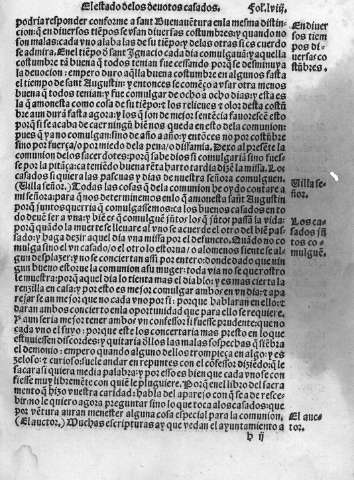 El estado delos deuotos casados.      Fol.lviij.
podria responder conforme a sant Buenauẽtura en la mesma distin-
cion: q̃ en diuersos tiẽpos se vsan diuersas costumbres: y quando no
son malas: cada vno alaba las de su tiẽpo y delas otras si es cuerdo
se admira. En el tiẽpo q̃ sant Ignacio cada dia comulgauã: y aquella
costumbre tã buena q̃ todos tenian fue cessando porq̃ se desminuya
la deuocion: empero duro aq̃lla buena costumbre en algunos fasta
el tiempo de sant Augustin: y entonces se comẽço a vsar otra menos
buena q̃ todos tenian: y fue comulgar de ocho a ocho dias: y esta es
la q̃ amonesta como cosa de su tiẽpo: t los relieues t olor desta costũ-
bre aun dura fasta agora: y los q̃ son de mejor sentẽcia fauorescẽ esto
porq̃ si se acaba de caer ningũ biẽ nos queda en esto dela comunion:
pues q̃ ya no comulgamos sino de año a año: y entõces no por costũbre
sino por fuerça/o por miedo dela pena/o disfamia. Dexo al presẽte la
comunion delos sacerdotes: porq̃ sabe dios si comulgariã sino fues-
se por la pitãça: ca teniẽdo buena rẽta harto tarde dizẽ la missa. Los
casados si quiera las pascuas y dias de nuestra señora comulguen.
(Uilla señor.) Todas las cosas q̃ dela comunion he oydo contare a
mi señora: para q̃ nos determinemos en lo q̃ amonesta sant Augustin
porq̃ juntos querria q̃ comulgassemos: ca los buenos casados en to-
do deuẽ ser a vna: y biẽ es q̃ comulguẽ jũtos los q̃ jũtos passã la vida:
porq̃ quãdo la muerte se lleuare al vno se acuerde el otro del biẽ pas-
sado: y haga dezir aquel dia vna missa por el defuncto. Quãdo no co-
mulga sino el vn casado/o el otro lo estorna/o alomenos siente al-
gun desplazer: y no se conciertan assi por entero: donde dado que nin
gun bueno estorue la comunion asu muger: toda via no se que rostro
le muestra: porq̃ aquel dia lo tienta mas el diablo: y es mas cierta la
renzilla en casa: y por esto es mejor comulgar ambos en vn dia: t apa-
rejar se an mejor que no cada vno por si: porque hablaran en ello: t
daran ambos concierto en la oportunidad que para ello se requiere.
Y aun seria mejor tener ambos vn confessor si fuesse prudente: que no
cada vno el suyo: porque este los concertaria mas presto en lo que
estuuiessen discordes: y quitaria dellos las malas sospechas q̃ siẽbra
el demonio: empero quando alguno dellos tropieça en algo: y es
zeloso: t curioso suele andar en repuntes con el cõfessor diziẽdo: q̃ le
sacara si quiera media palabra: y por esso es bien que cada vno se con
fiesse muy libremẽte con quiẽ le pluguiere. Porq̃ en el libro del sacra
mento q̃ hizo vuestra caridad: habla del aparejo con q̃ se a de resce-
bir: no le quiero agora preguntar sino lo que toca alos casados: que
por vẽtura auran menester alguna cosa especial para la comunion.
(El auctor.) Muchas escripturas ay que vedan el ayuntamiento a
h ij
En diuer
sos tiem
pos di-
uersas co
stũbres.
Uilla se-
ñor.
Los ca-
sados jũ
tos co-
mulguẽ.
El auc-
tor.